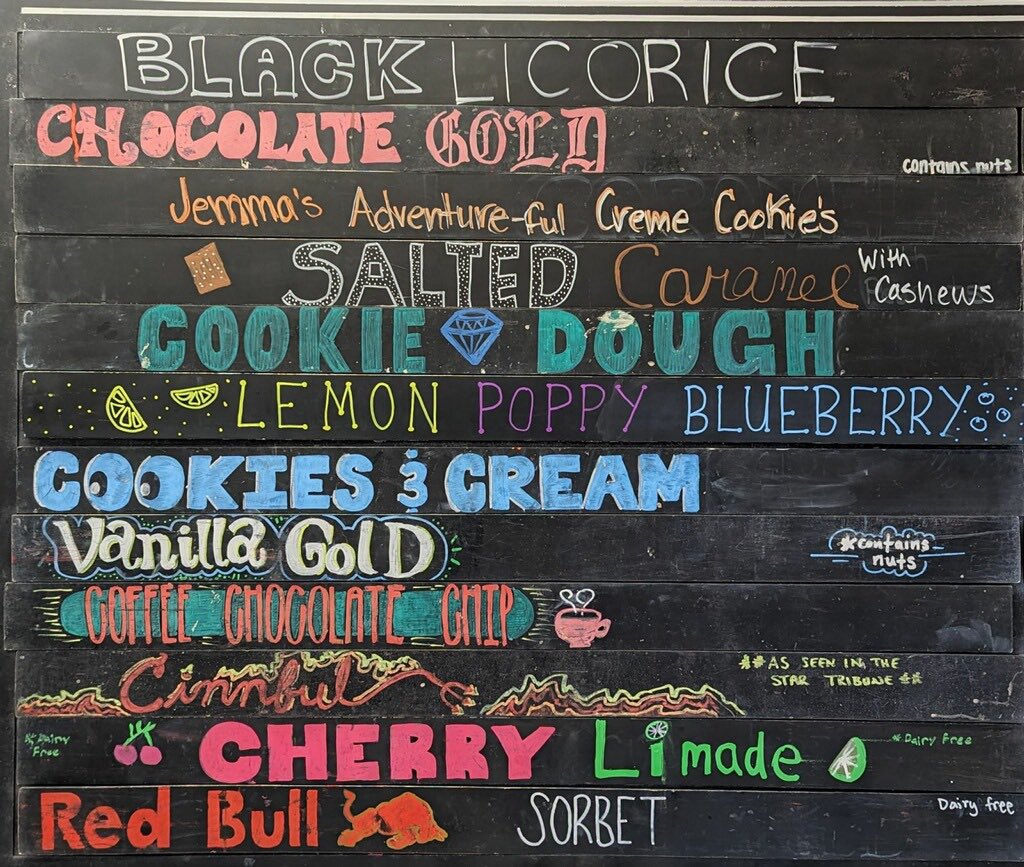 BLACK LICORICE
CHOCOLATE GOLD contains nuts
Jemma's Adventure-ful Creme Cookie's
SALTED Caramel With Cashews
COOKIE DOUGH
LEMON POPPY BLUEBERRY
COOKIES & CREAM
Vanilla GolD *contains nuts
COFFEE CHOCOLATE CHIP
Cinnful ** AS SEEN IN THE STAR TRIBUNE **
* Dairy Free CHERRY Limade * Dairy Free
Red Bull SORBET Dairy free